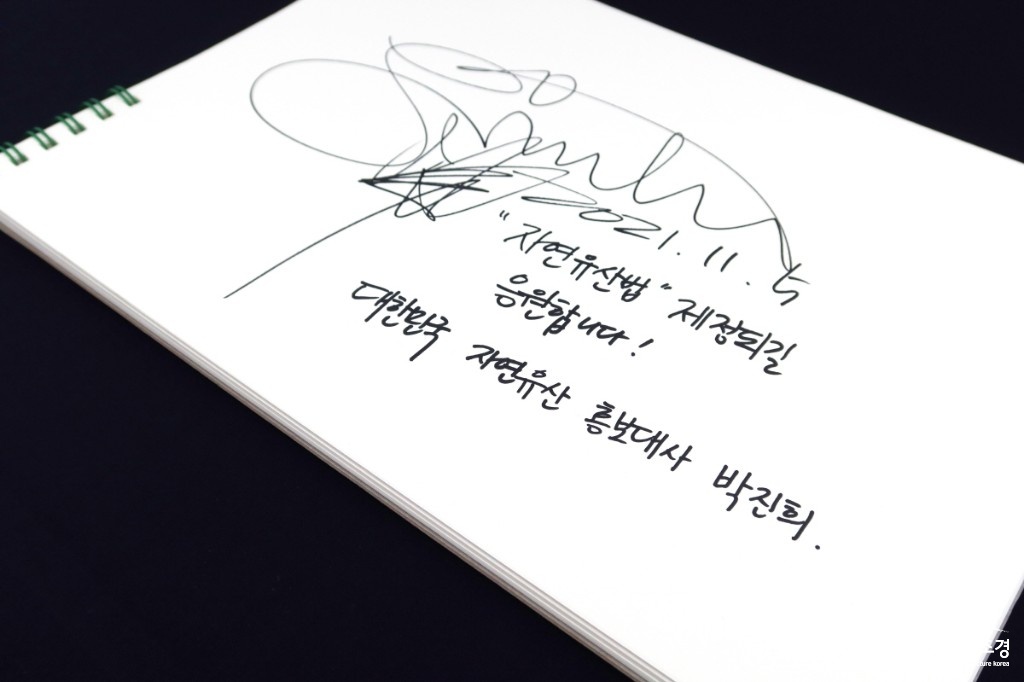 2021. 11. 5
"자연유산법" 제정되길
응원합니다!
대한민국 자연유산 홍보대사 박진희.